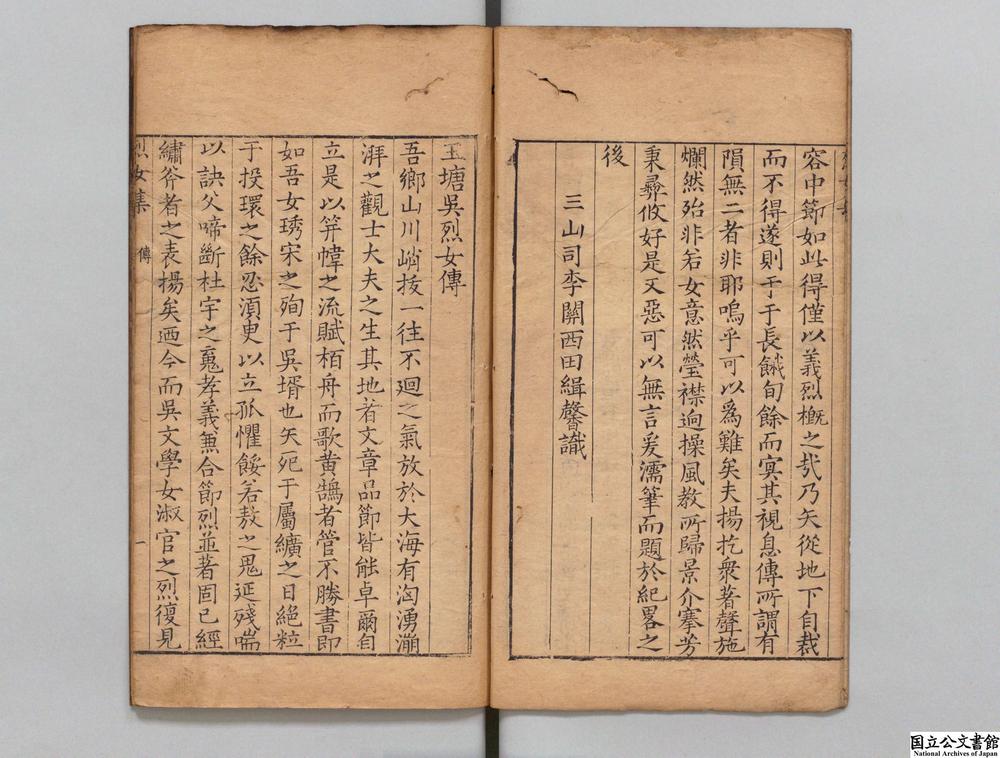 容中節如此得僅以義烈概之哉乃矢從地下自裁
而不得遂則于于長餓旬餘而冥其視息傳所謂有
隕無二者非耶嗚乎可以爲難矣夫揚扢衆著聲施
爛然殆非若女意然瑩襟逈操風教所歸景介搴芳
秉彛攸好是又惡可以無言爰濡筆而題於紀畧之
後
三山司李關西田緝馨識
玉塘吳烈女傳
吾鄉山川峭拔一往不迴之氣放於大海有洶湧漰
湃之觀士大夫之生其地者文章品節皆能卓爾自
立是以笄幃之流賦栢舟而歌黄鵠者管不勝書即
如吾女琇宋之殉于吳壻也矢死于屬纊之日絕粒
于投環之餘忍須臾以立孤懼餒若敖之鬼延殘喘
以訣父啼斷杜宇之䰟孝義兼合節烈並著固已經
繡斧者之表揚矣迺今而吳文學女淑官之烈復見
烈女集
傳
一
国立公文書館
National Archives of Japan